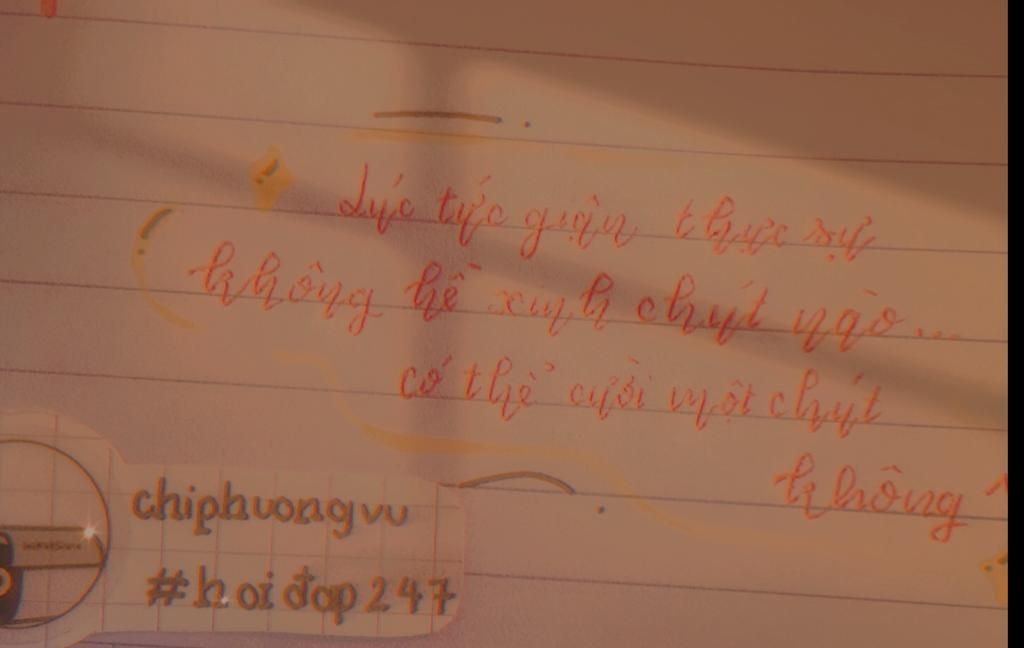 Lực tức giận thực sự
không hề xinh chút nào...
có thể cười một chút
không
chiphuongvu
#hoiđap247